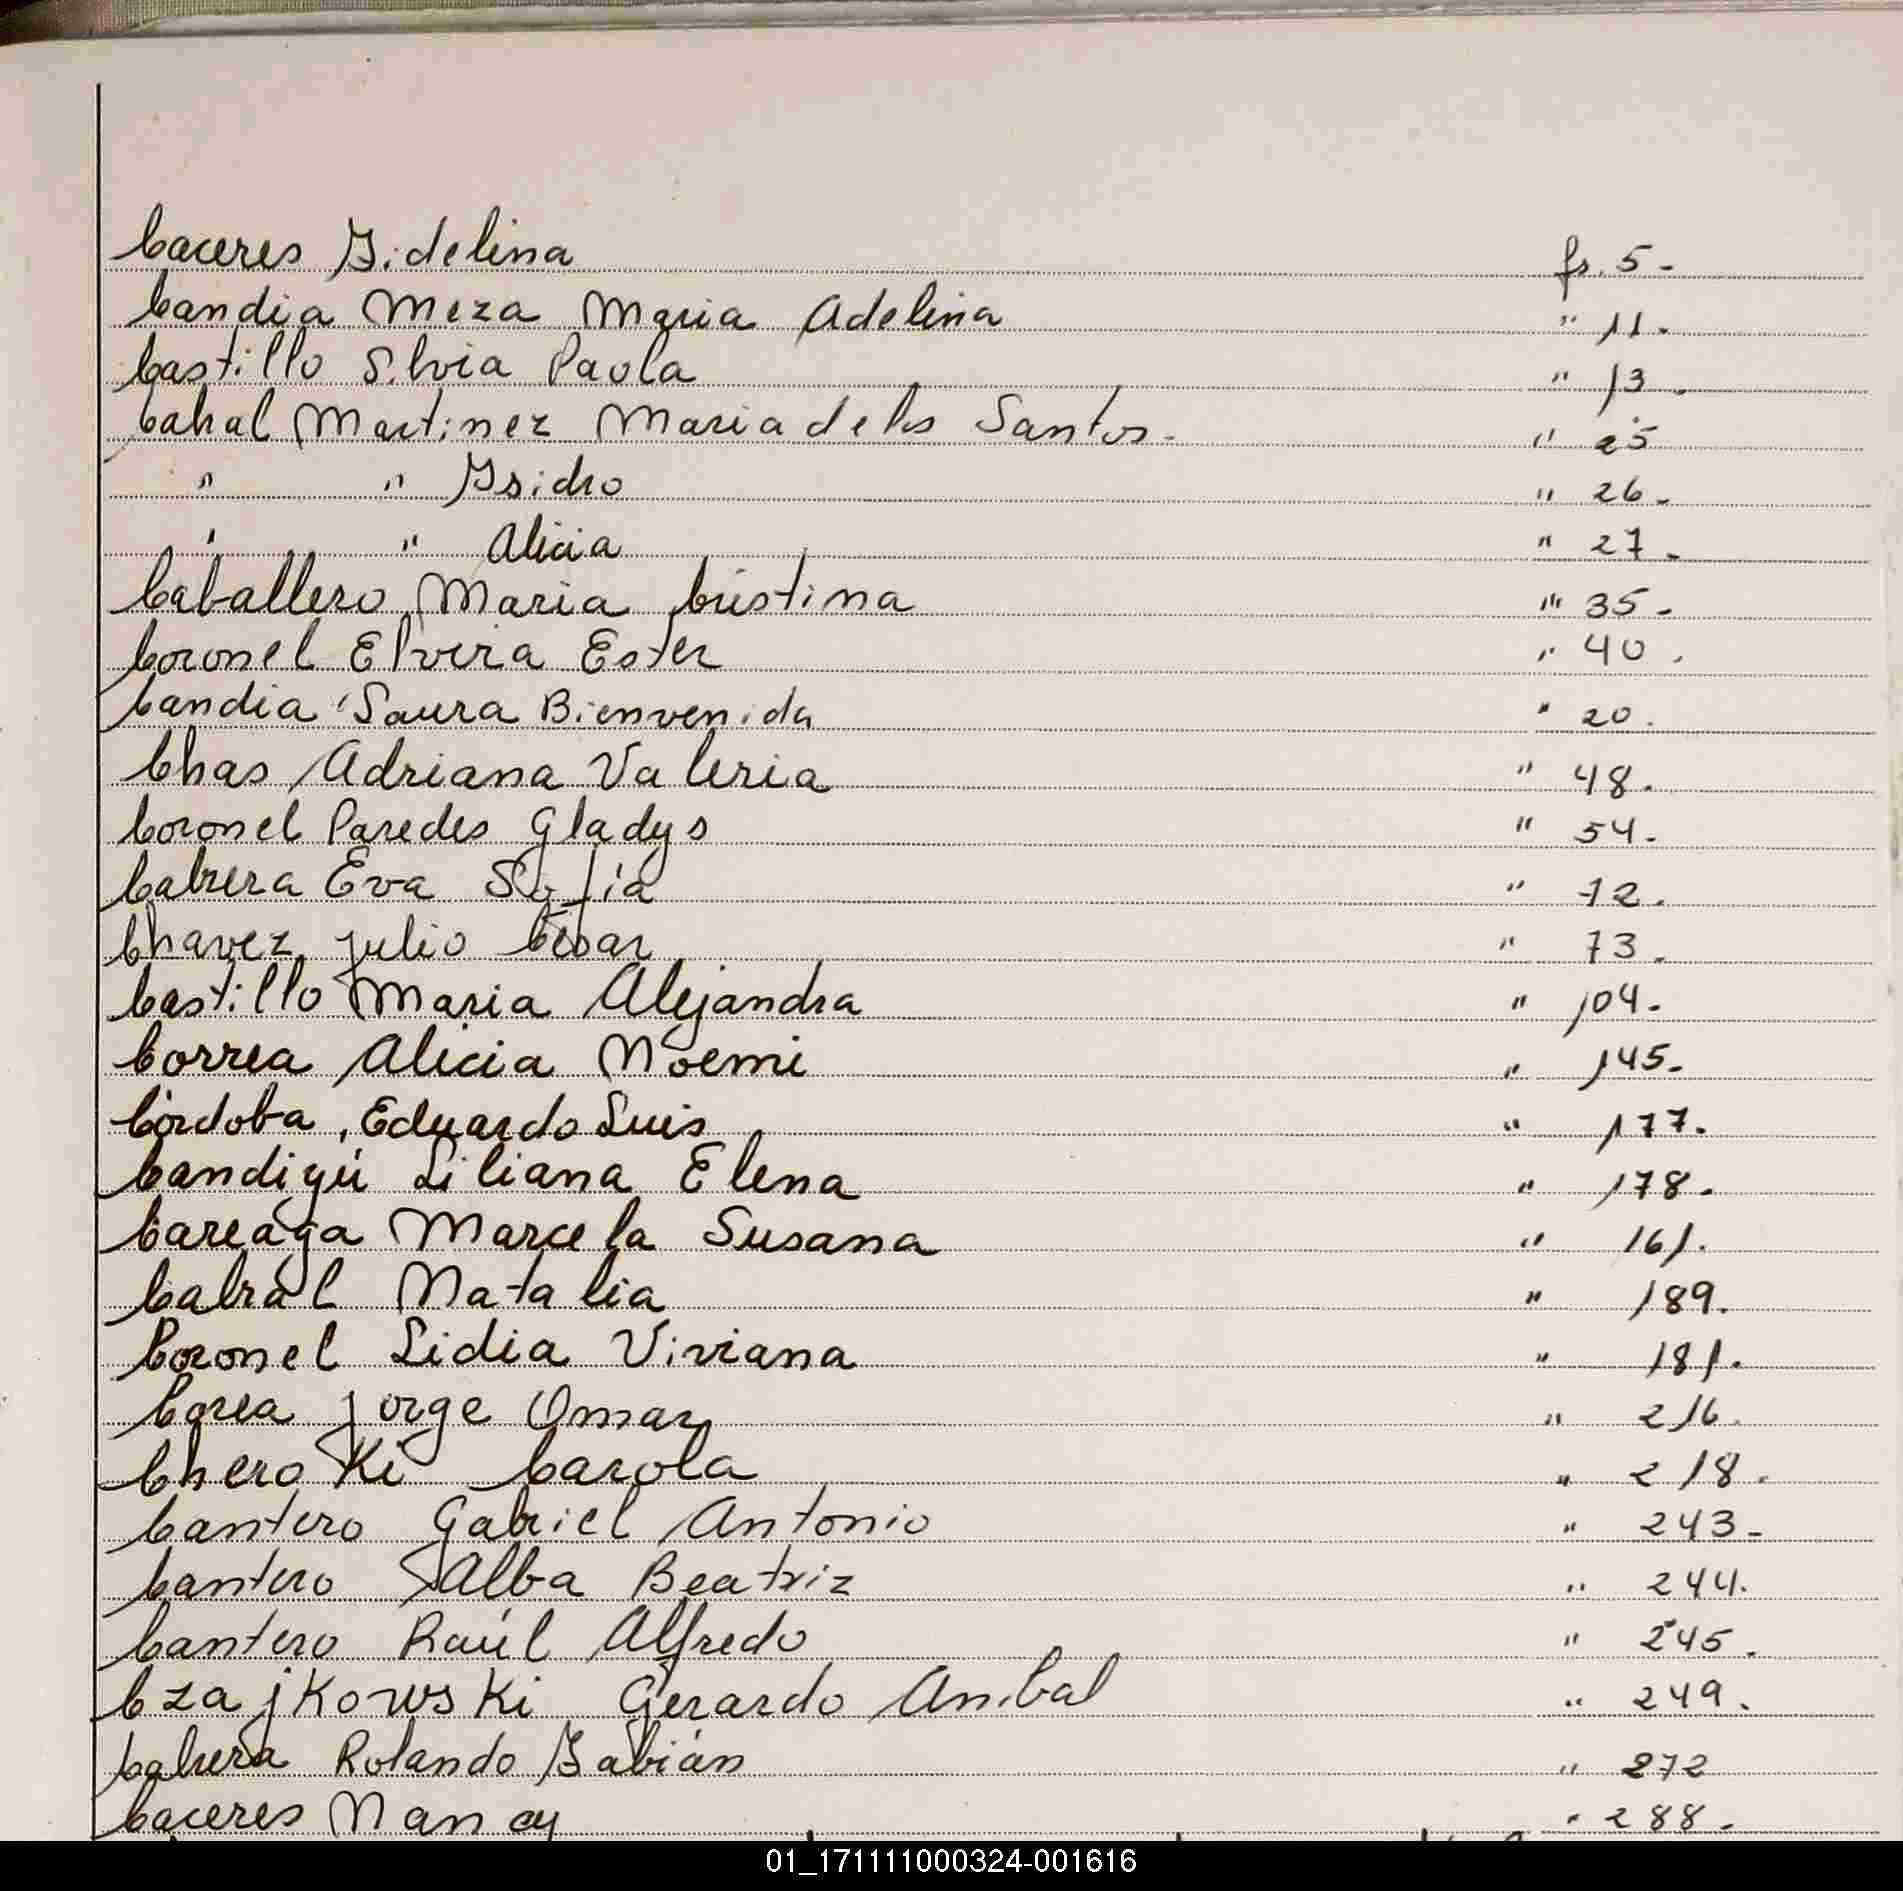 Caceres Fidelina fs. 5-
Candia Meza Maria Adelina " 11.
Castillo Silvia Paola " 13.
Cabral Martinez Maria de los Santos. " 25
" " Ysidro " 26.
" " Alicia " 27.
Caballero Maria Cristina " 35.
Coronel Elvira Ester " 40.
Candia Laura Bienvenida " 20.
Chas Adriana Valeria " 48.
Coronel Paredes Gladys " 54.
Cabrera Eva Sofia " 72.
Chavez Julio Cesar " 73.
Castillo Maria Alejandra " 104.
Correa Alicia Noemi " 145.
Córdoba, Eduardo Luis " 177.
Candiyú Liliana Elena " 178.
Careaga Marcela Susana " 161.
Cabral Natalia " 189.
Coronel Lidia Viviana " 181.
Corea Jorge Omar " 216.
Cheroki Carola " 218.
Cantero Gabriel Antonio " 243-
Cantero Alba Beatriz " 244.
Cantero Raúl Alfredo " 245.
Czajkowski Gerardo Anibal " 249.
Cabrera Rolando Fabián " 272
Caceres Nancy " 288.
01_171111000324-001616